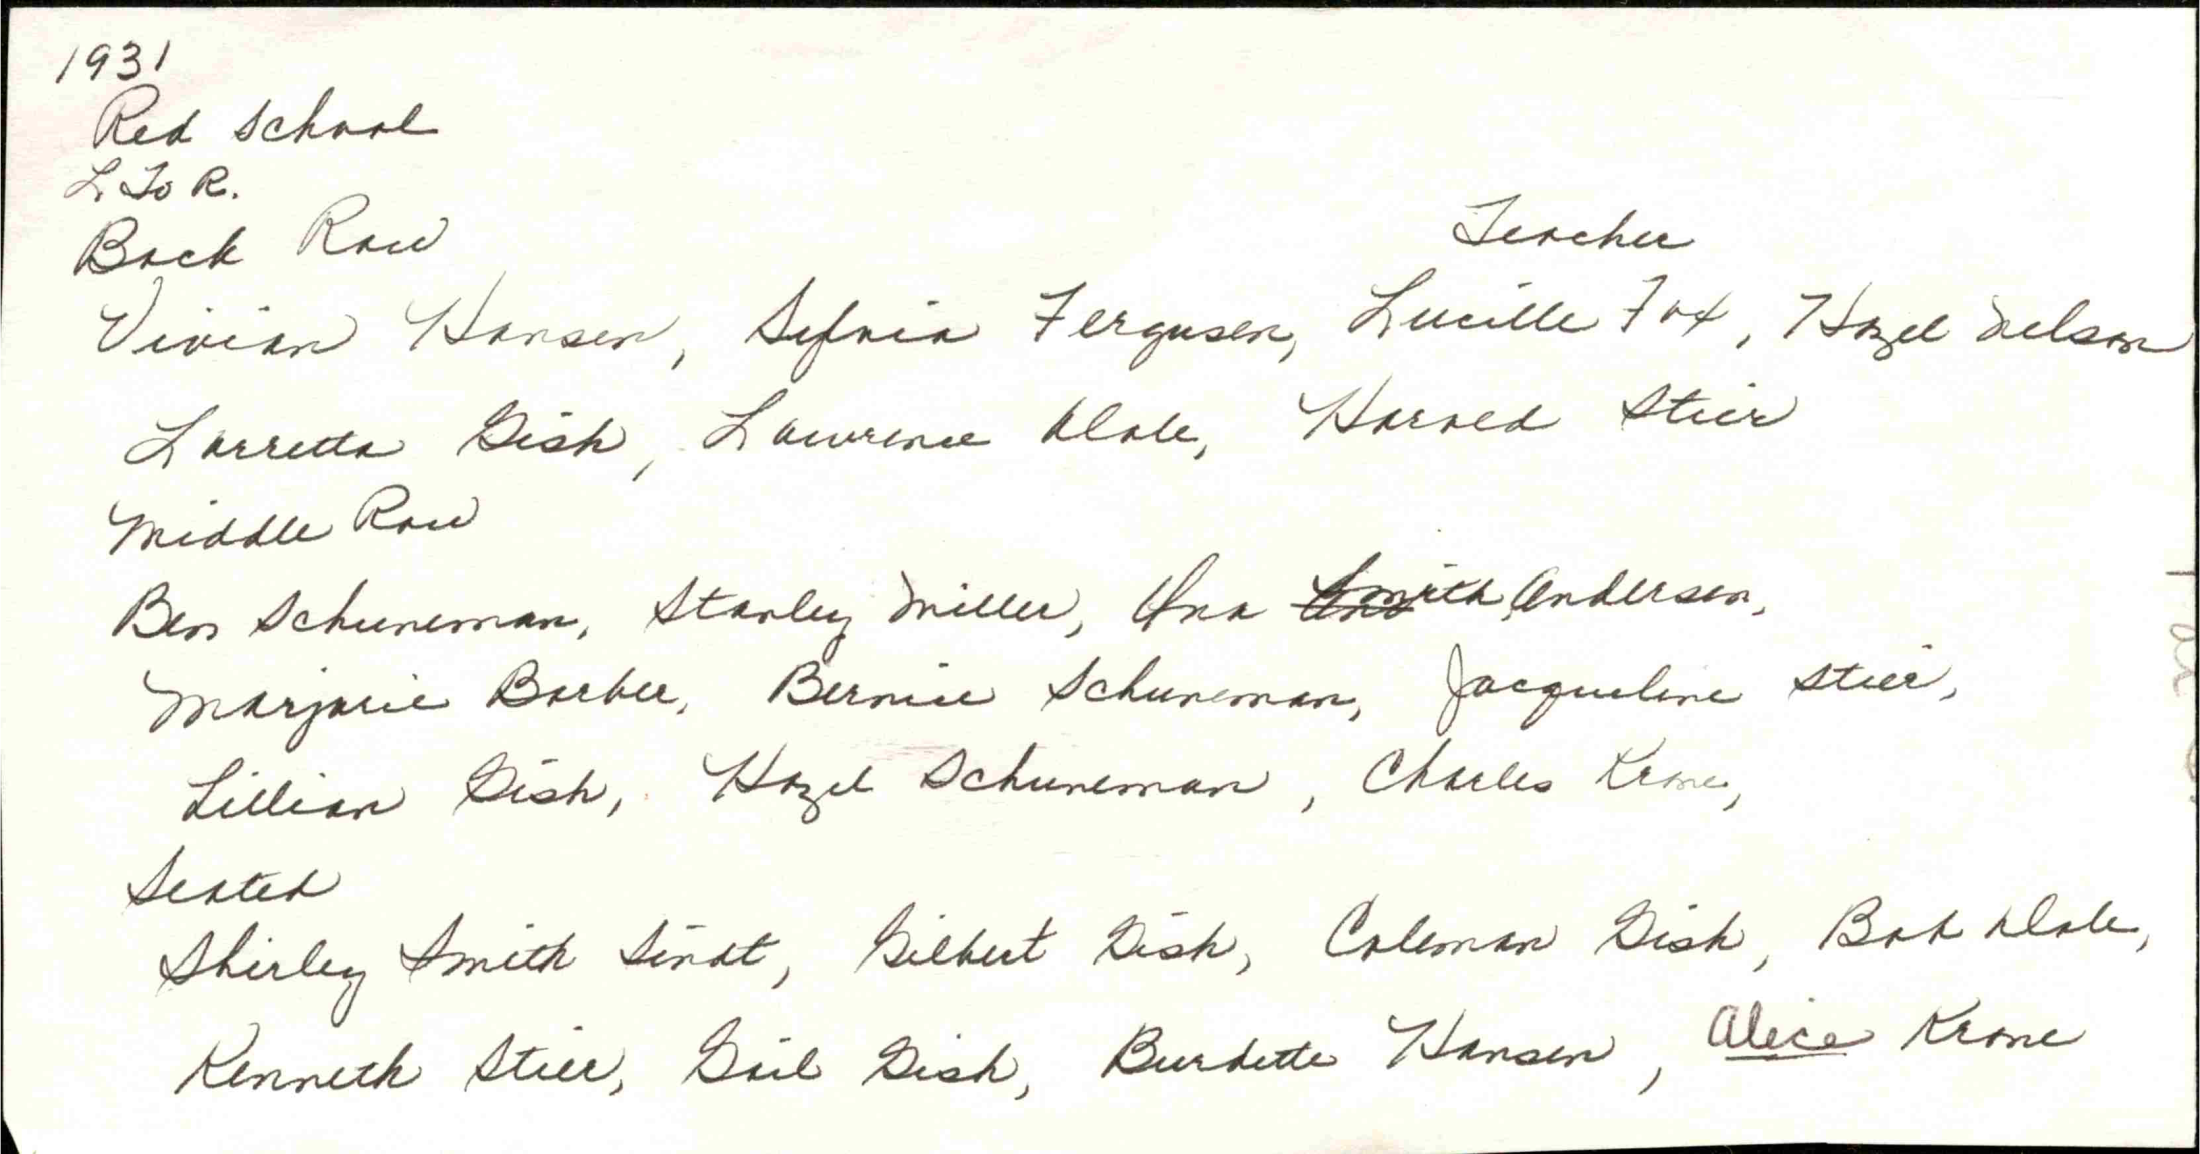 1931
Red School
L To R.
Back Row
Teacher
Vivian Hansen, Sylvia Ferguson, Lucille Fox, Hazel Nelson
Lorretta Gish, Lawrence Dale, Harold Stier
Middle Row
Ben Schuneman, Stanley Miller, Ina Smith Anderson,
Marjorie Barber, Bernice Schuneman, Jacqueline Stier,
Lillian Gish, Hazel Schuneman, Charles Krone,
Seated
Shirley Smith Sindt, Gilbert Gish, Coleman Gish, Bob Dale,
Kenneth Stier, Gail Gish, Burdette Hansen, Alice Krone